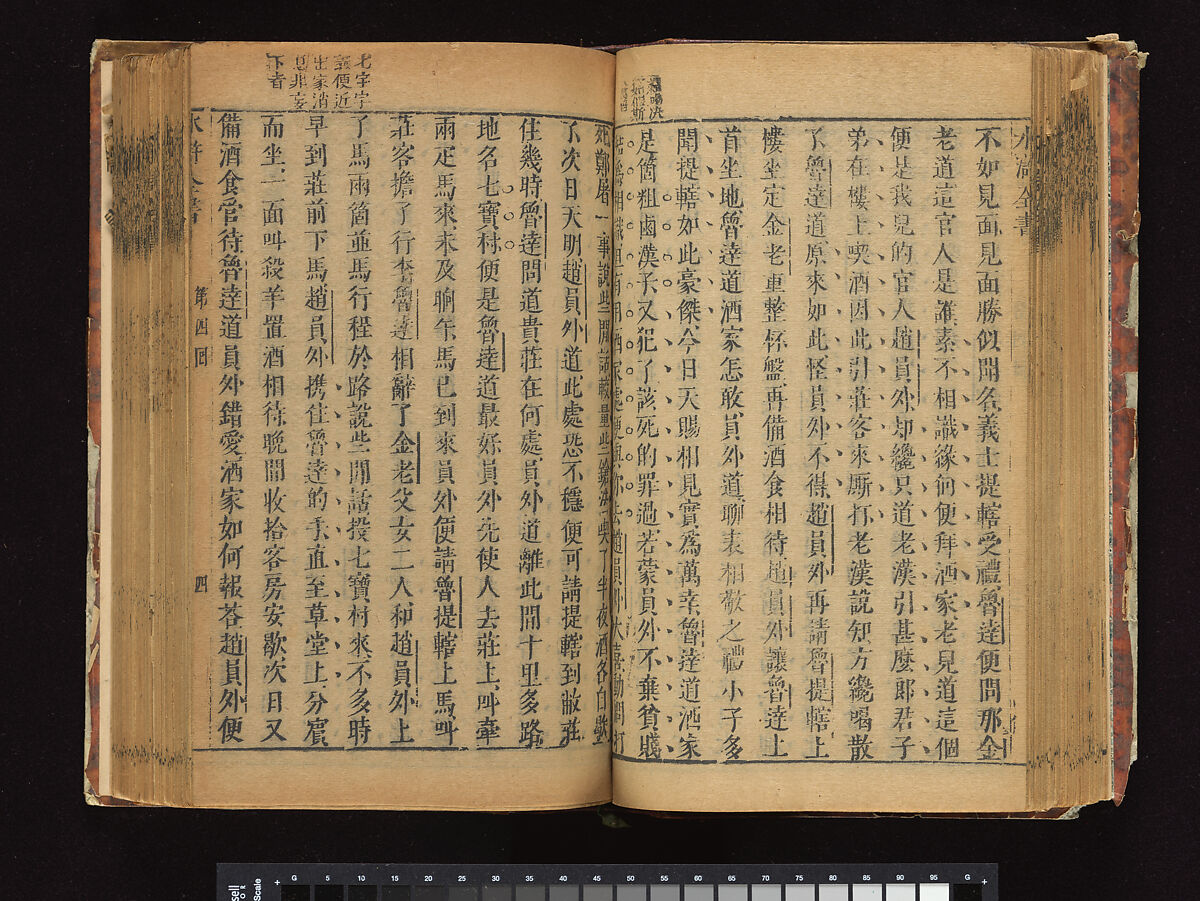 水滸全書
不如見面見面勝似聞名義士提轄受禮魯達便問那金
老道這官人是誰素不相識緣何便拜洒家老兒道這個
便是我兒的官人趙員外却纔只道老漢引甚麼郎君子
弟在樓上喫酒因此引莊客來厮打老漢說知方纔喝散
了魯達道原來如此怪員外不得趙員外再請魯提轄上
樓坐定金老重整杯盤再備酒食相待趙員外讓魯達上
首坐地魯達道洒家怎敢員外道聊表相敬之禮小子多
聞提轄如此豪傑今日天賜相見實爲萬幸魯達道洒家
是箇粗鹵漢子又犯了該死的罪過若蒙員外不棄貧賤
趙員外大喜動問打
死鄭屠一事說些閒話較量些鎗法喫了半夜酒各自歇
了次日天明趙員外道此處恐不穩便可請提轄到敝莊
住幾時魯達問道貴莊在何處員外道離此間十里多路
地名七寶村便是魯達道最好員外先使人去莊上叫牽
兩疋馬來未及晌午馬已到來員外便請魯提轄上馬叫
莊客擔了行李魯達相辭了金老父女二人和趙員外上
了馬兩箇並馬行程於路說些閒話投七寶村來不多時
早到莊前下馬趙員外携住魯達的手直至草堂上分賓
而坐一面叫殺羊置酒相待晚間收拾客房安歇次日又
備酒食管待魯達道員外錯愛洒家如何報荅趙員外便
第四回
四
字字
便近
出家消
息非妄
下者
G 5 10 20 30 40 50 60 70 80 85 90 95 G
Scale